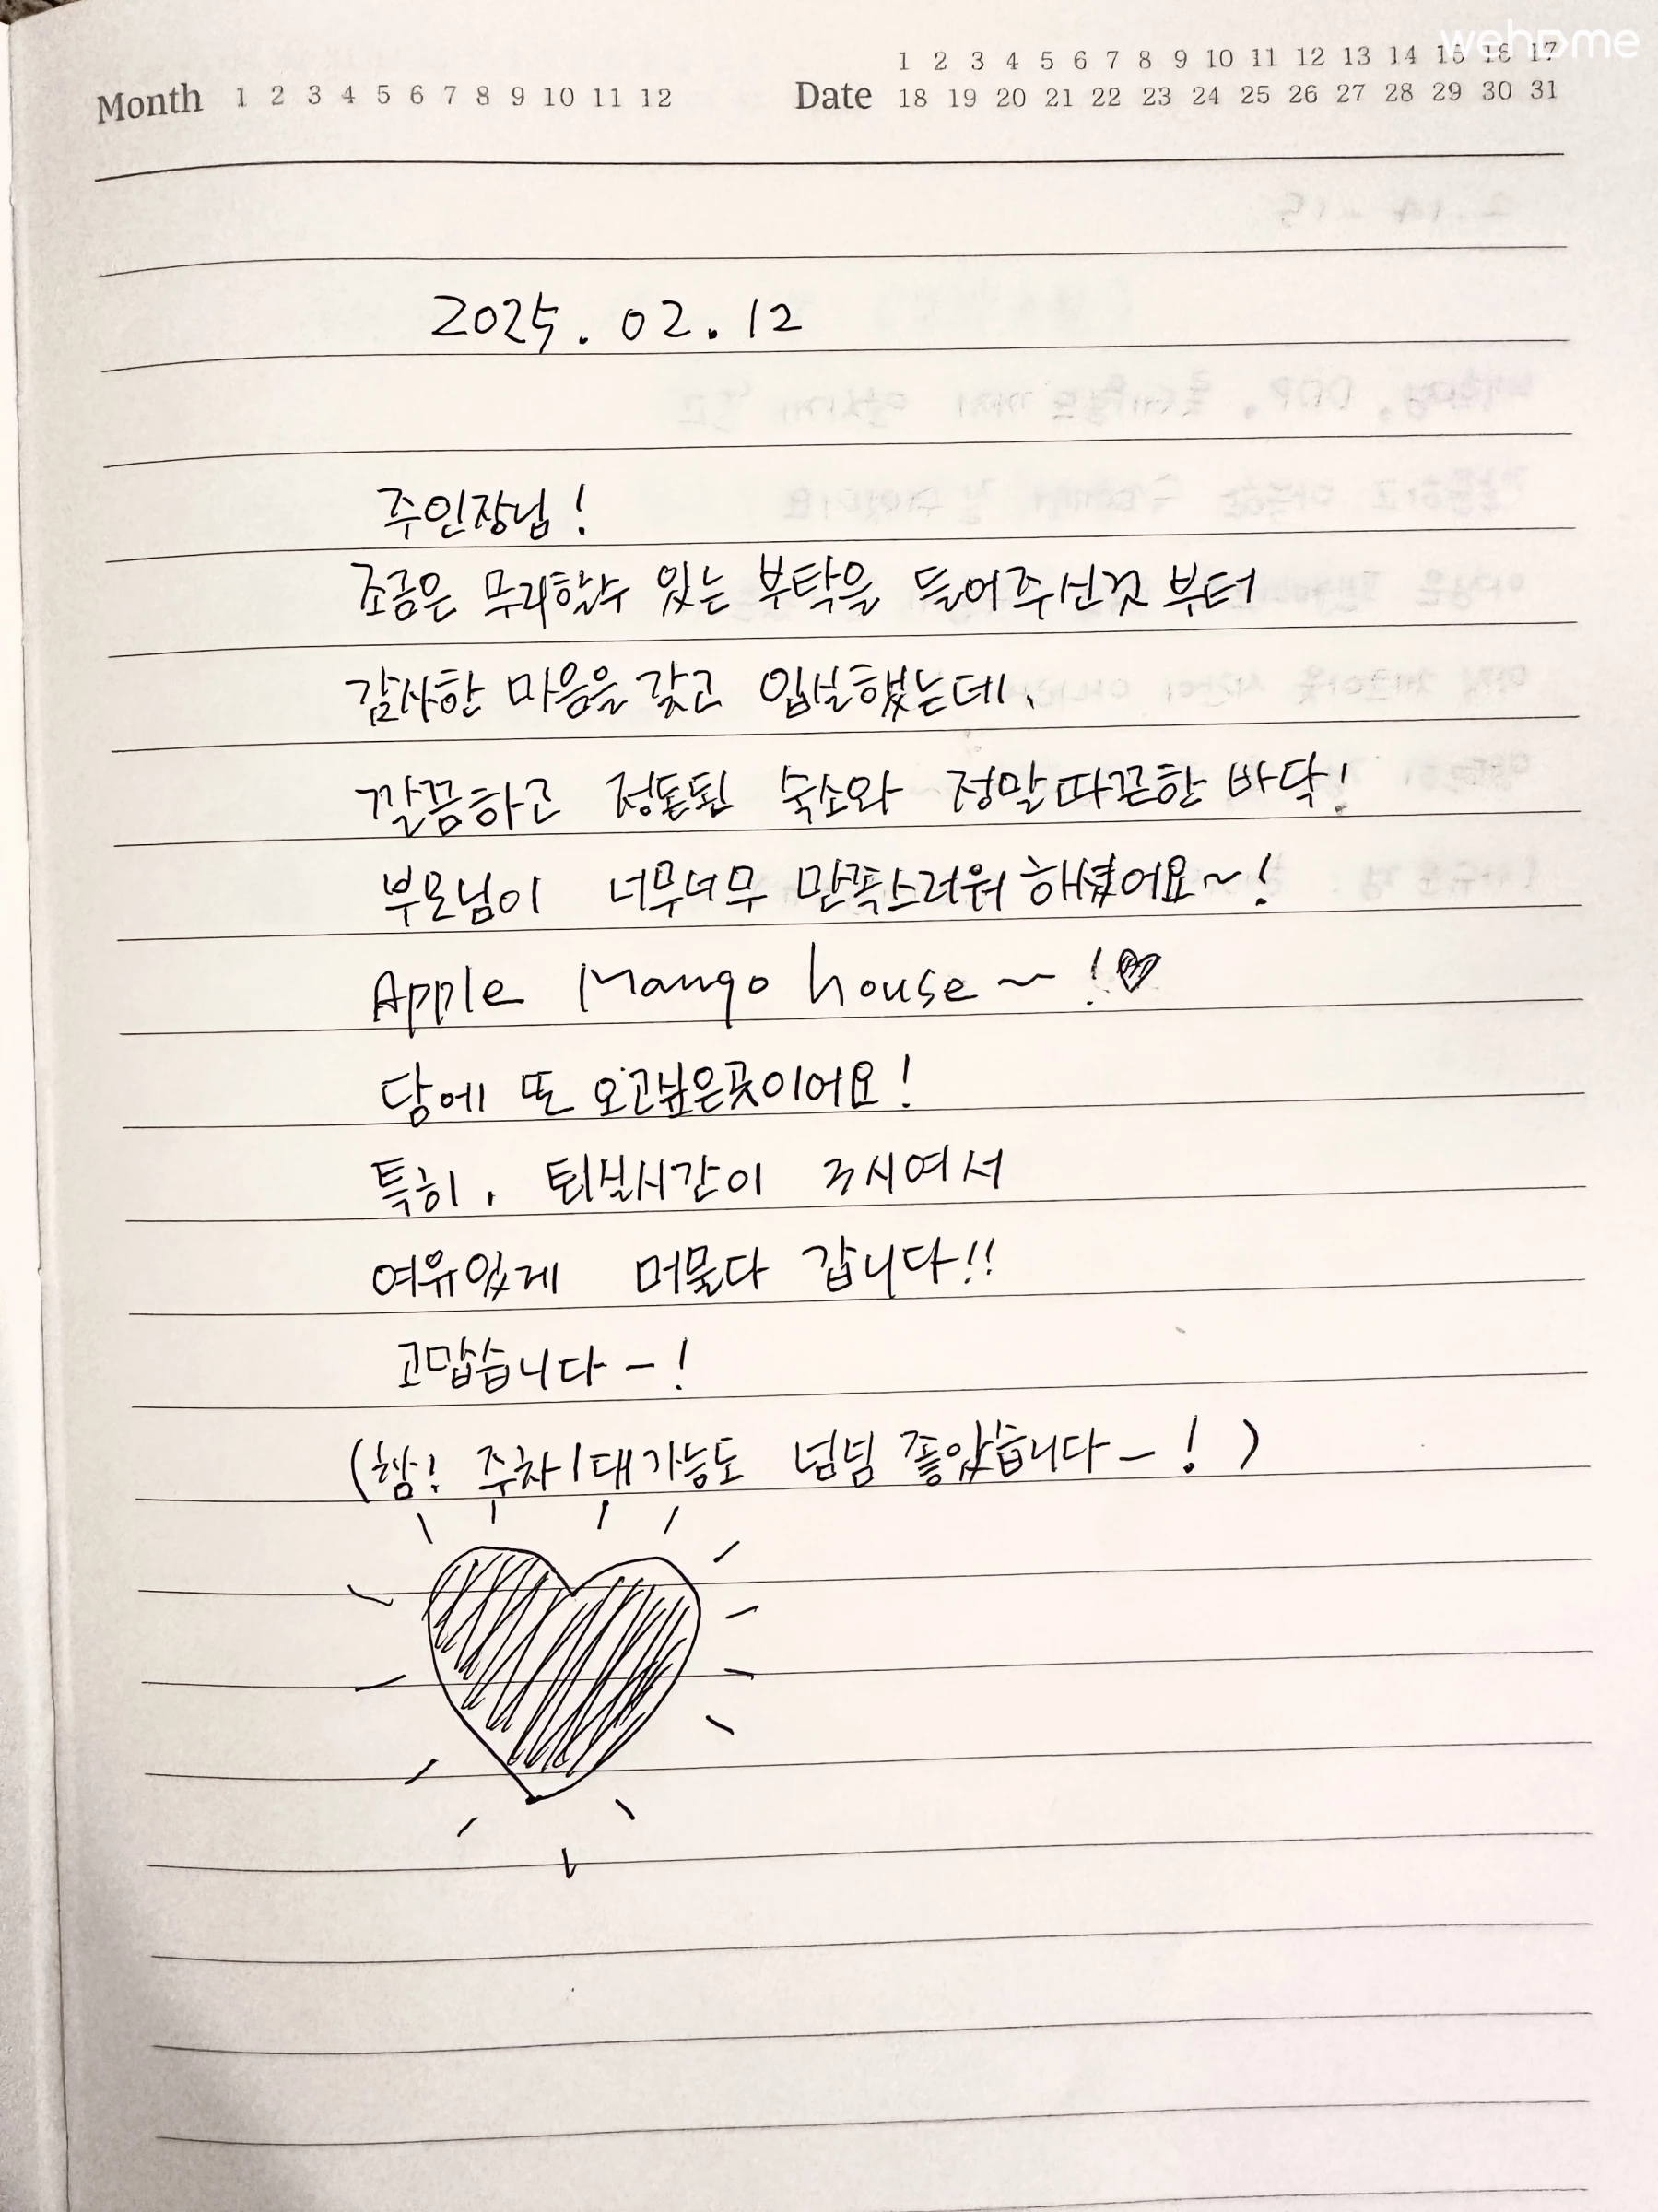 wehome
1 2 3 4 5 6 7 8 9 10 11 12 13 14 15 16 17
Month 1 2 3 4 5 6 7 8 9 10 11 12 Date 18 19 20 21 22 23 24 25 26 27 28 29 30 31
2025. 02. 12
주인장님!
조금은 무리할수 있는 부탁을 들어주신것 부터
감사한 마음을 갖고 입실했는데,
깔끔하고 정돈된 숙소와 정말 따끈한 바닥!
부모님이 너무너무 만족스러워 하셨어요~!
Apple Mango house~!♡
담에 또 오고싶은곳이어요!
특히, 퇴실시간이 구시여서
여유있게 머물다 갑니다!!
고맙습니다-!
(함! 주차1대가능도 넘넘 좋았습니다-!)